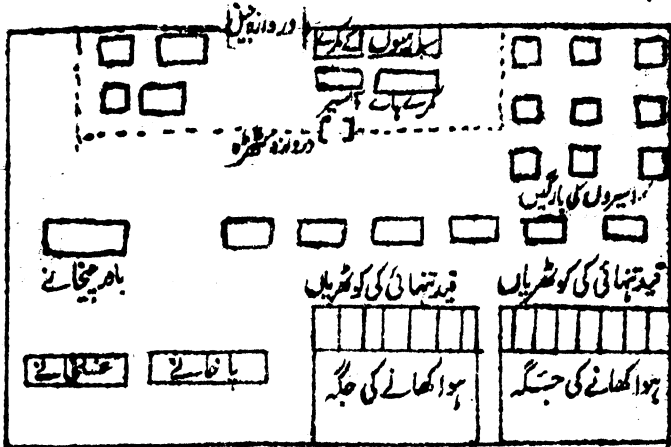 دروازہ جیل
سپاہیوں کے کمرے
کمرے ہائے اسیر
دروازہ کٹہرہ
اسیروں کی بارکیں
باورچیخانے
قید تنہائی کی کوٹھریاں
قید تنہائی کی کوٹھریاں
غسلخانے
پاخانے
ہوا کھانے کی جگہ
ہوا کھانے کی جگہ